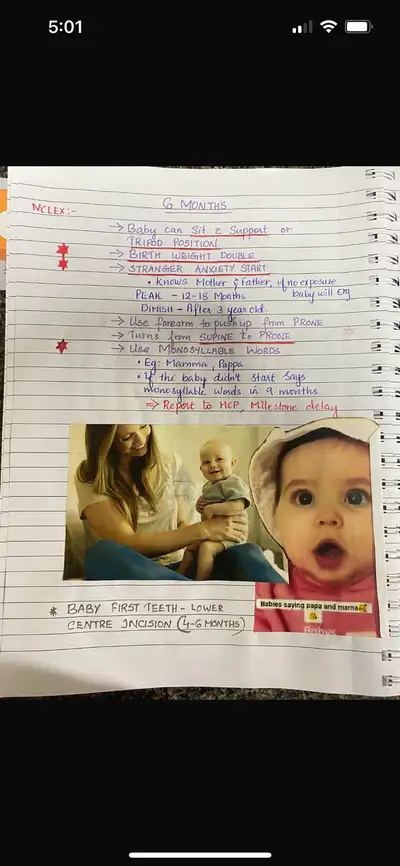 5:01
NCLEX:-
6 MONTHS
→ Baby can Sit c̄ Support or
TRIPOD POSITION
→ BIRTH WEIGHT DOUBLE
→ STRANGER ANXIETY START
• Knows Mother & Father, if no exposure
baby will cry
PEAK - 12-18 Months
DIMISH - After 3 year old.
→ Use forearm to push up from PRONE
→ Turns from SUPINE to PRONE
→ Use MONOSYLLABLE WORDS
• Eg: Mamma, Pappa
• if the baby didn't start says
monosyllable words in 9 months
⇒ Report to HCP, Milestone delay
Babies saying papa and mama
Babys
* BABY FIRST TEETH - LOWER
CENTRE INCISION (4-6 MONTHS)